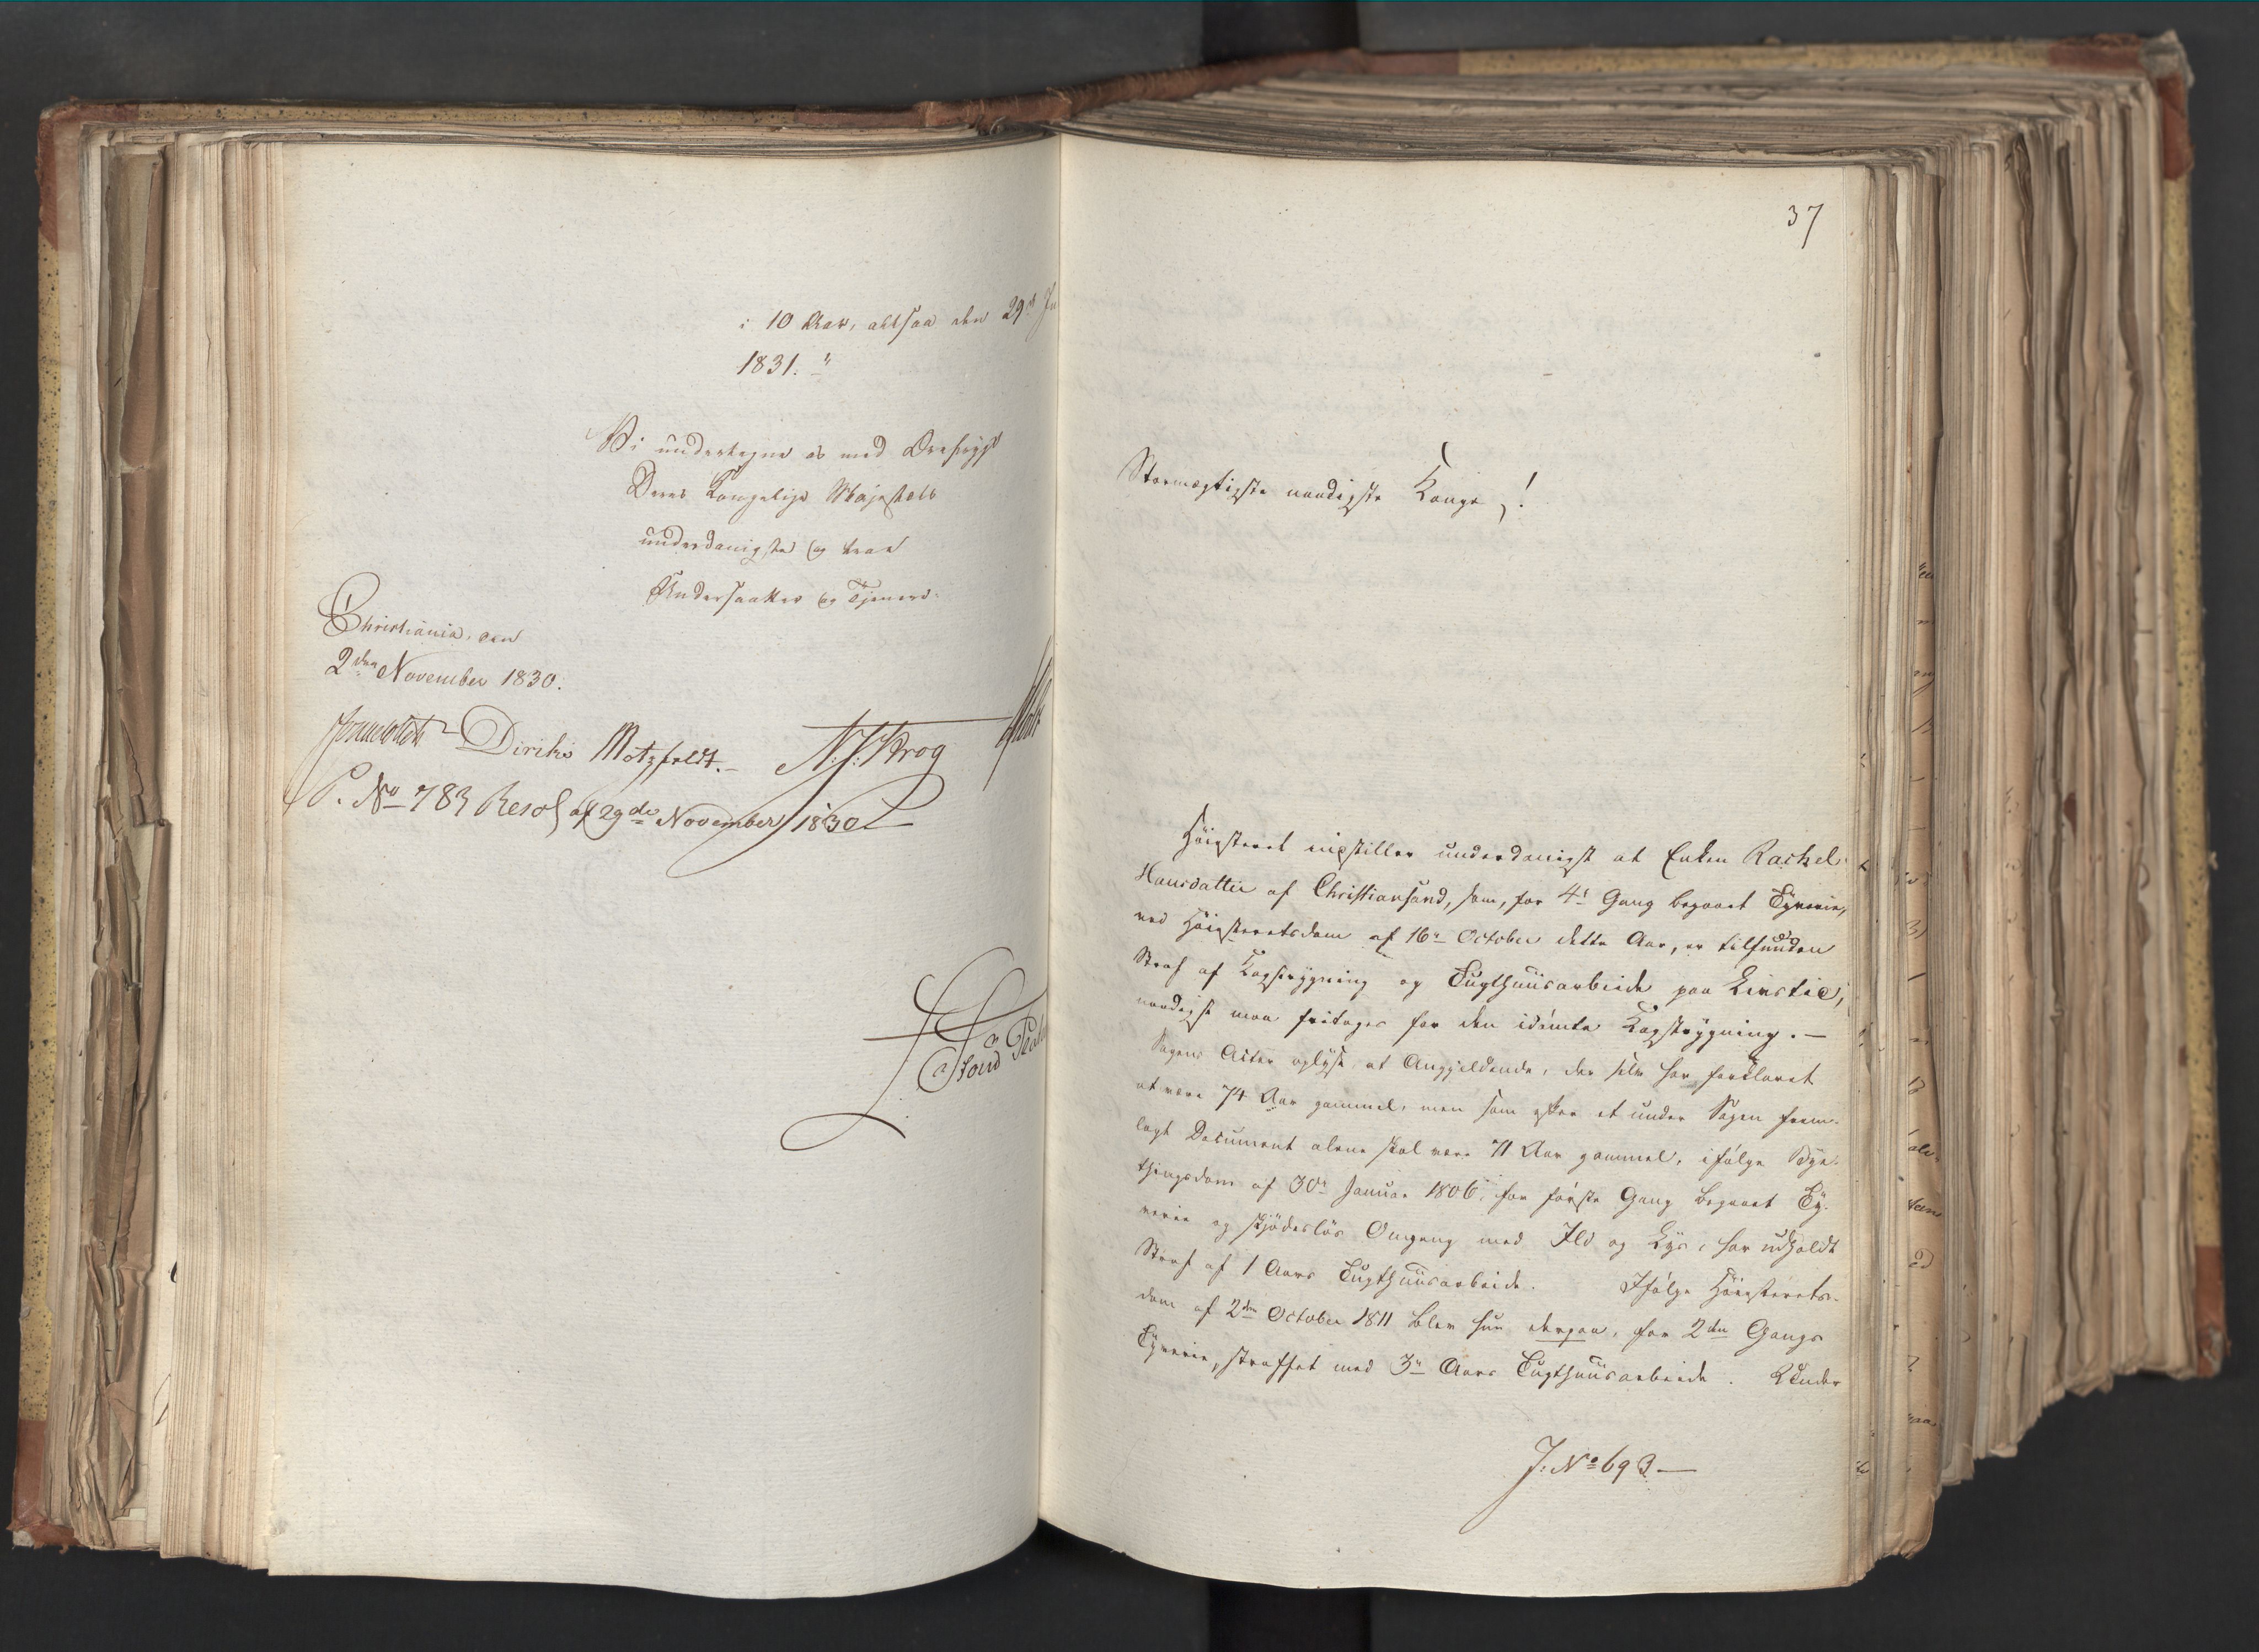 i 10 Aar, altsaa den 29de
1831."
Vi undertegne os med Ærefrygt
Deres Kongelige Majestæts
underdanigste og troe
Undersaatter og Tjenere.
Christiania, den
2den November 1830.
Diriks Motzfeldt. N. J. Krog
P. No 783 Resol. af 29de November 1830
37
Stormægtigste naadigste Konge!
Höiesteret indstiller underdanigst at Enken Rachel
Hansdatter af Christiansand, som, for 4de Gang begaaet Tyverie,
ved Höiesteretsdom af 16de October dette Aar, er tilfunden
Straf af Kagstrygning og Tugthuusarbeide paa Livstid,
naadigst maa fritages for den idömte Kagstrygning. —
Sagens Acter oplyse, at Angjeldende, der selv har forklaret
at være 74 Aar gammel, men som efter et under Sagen frem-
lagt Document alene skal være 71 Aar gammel, ifölge Bye-
thingsdom af 30te Januar 1806, for förste Gang begaaet Ty-
verie og skjödeslös Omgang med Ild og Lys, har udholdt
Straf af 1 Aars Tugthuusarbeide. Ifölge Höiesterets-
dom af 2den October 1811 blev hun derpaa, for 2den Gangs
Tyverie, straffet med 3de Aars Tugthuusarbeide. Under
J: No 693 —